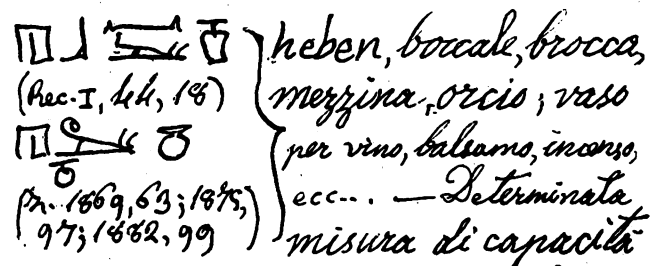 (Rec. I, 44, 18)
1869, 63; 1875,
97; 1882, 99)
heben, boccale, brocca,
mezzina, orcio; vaso
per vino, balsamo, incenso,
ecc... — Determinata
misura di capacità